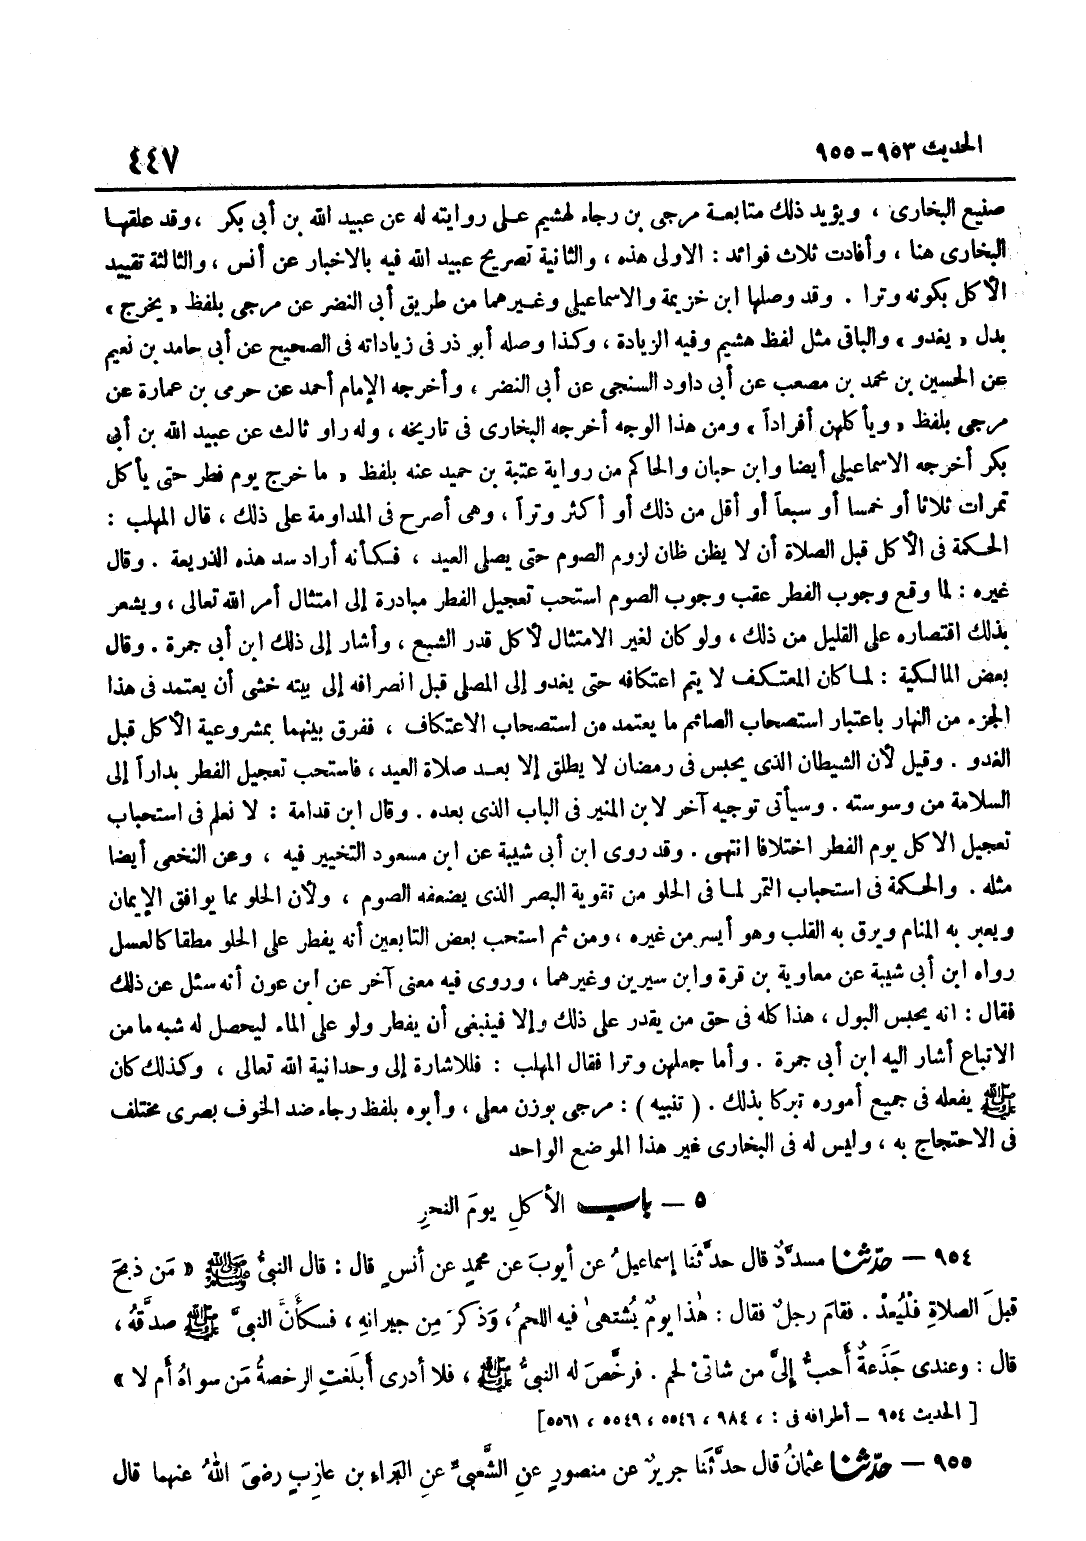 الحديث ٩٥٣ – ٩٥٥
٤٤٧
صنيع البخارى ، ويؤيد ذلك متابعة مرجى بن رجاء لهشيم على روايته له عن عبيد الله بن أبى بكر ، وقد علقها
البخارى هنا ، وأفادت ثلاث فوائد : الاولى هذه ، والثانية تصريح عبيد الله فيه بالاخبار عن أنس ، والثالثة تقييد
الأكل بكونه وترا . وقد وصلها ابن خزيمة والاسماعيلى وغيرهما من طريق أبى النضر عن مرجى بلفظ « يخرج »
بدل « يغدو » والباقى مثل لفظ هشيم وفيه الزيادة ، وكذا وصله أبو ذر فى زياداته فى الصحيح عن أبى حامد بن نعيم
عن الحسين بن محمد بن مصعب عن أبى داود السنجى عن أبى النضر ، وأخرجه الإمام أحمد عن حرمى بن عمارة عن
مرجى بلفظ « ويأكلهن أفراداً » ومن هذا الوجه أخرجه البخارى فى تاريخه ، وله راو ثالث عن عبيد الله بن أبى
بكر أخرجه الاسماعيلى أيضا وابن حبان والحاكم من رواية عتبة بن حميد عنه بلفظ « ما خرج يوم فطر حتى يأكل
تمرات ثلاثا أو خمسا أو سبعاً أو أقل من ذلك أو أكثر وتراً ، وهى أصرح فى المداومة على ذلك ، قال المهلب :
الحكمة فى الأكل قبل الصلاة أن لا يظن ظان لزوم الصوم حتى يصلى العيد ، فكأنه أراد سد هذه الذريعة . وقال
غيره : لما وقع وجوب الفطر عقب وجوب الصوم استحب تعجيل الفطر مبادرة إلى امتثال أمر الله تعالى ، ويشعر
بذلك اقتصاره على القليل من ذلك ، ولو كان لغير الامتثال لأكل قدر الشبع ، وأشار إلى ذلك ابن أبى جمرة . وقال
بعض المالكية : لما كان المعتكف لا يتم اعتكافه حتى يغدو إلى المصلى قبل انصرافه إلى بيته خشى أن يعتمد فى هذا
الجزء من النهار باعتبار استصحاب الصائم ما يعتمد من استصحاب الاعتكاف ، ففرق بينهما بمشروعية الأكل قبل
الغدو . وقيل لأن الشيطان الذى يحبس فى رمضان لا يطلق إلا بعد صلاة العيد ، فاستحب تعجيل الفطر بداراً إلى
السلامة من وسوسته . وسيأتى توجيه آخر لابن المنير فى الباب الذى بعده . وقال ابن قدامة : لا نعلم فى استحباب
تعجيل الاكل يوم الفطر اختلافا انتهى . وقد روى ابن أبى شيبة عن ابن مسعود التخيير فيه ، وعن النخعى أيضا
مثله . والحكمة فى استحباب التمر لما فى الحلو من تقوية البصر الذى يضعفه الصوم ، ولأن الحلو مما يوافق الإيمان
ويعبر به المنام ويرق به القلب وهو أيسر من غيره ، ومن ثم استحب بعض التابعين أنه يفطر على الحلو مطلقا كالعسل
رواه ابن أبى شيبة عن معاوية بن قرة وابن سيرين وغيرهما ، وروى فيه معنى آخر عن ابن عون أنه سئل عن ذلك
فقال : انه يحبس البول ، هذا كله فى حق من يقدر على ذلك وإلا فينبغى أن يفطر ولو على الماء ليحصل له شبه ما من
الاتباع أشار اليه ابن أبى جمرة . وأما جعلهن وترا فقال المهلب : فللاشارة إلى وحدانية الله تعالى ، وكذلك كان
ﷺ يفعله فى جميع أموره تبركا بذلك . ( تنبيه ) : مرجى بوزن معلى ، وأبوه بلفظ رجاء ضد الخوف بصرى مختلف
فى الاحتجاج به ، وليس له فى البخارى غير هذا الموضع الواحد
٥ – باب الأكلِ يومَ النحرِ
٩٥٤ – حدّثنا مسدَّدٌ قال حدَّثَنا إسماعيلُ عن أيوبَ عن محمدٍ عن أنسٍ قال : قال النبىُّ ﷺ « مَن ذبحَ
قبلَ الصلاةِ فلْيُعدْ . فقامَ رجلٌ فقال : هٰذا يومٌ يُشتهىٰ فيه اللحمُ ، وَذكرَ مِن جيرانهِ ، فكأنَّ النبىَّ ﷺ صدَّقهُ ،
قال : وعندى جَذَعةٌ أحبُّ إلىَّ من شاتَىْ لحم . فرخَّصَ له النبىُّ ﷺ ، فلا أدرى أبلَغتِ الرخصةُ مَن سواهُ أم لا »
[ الحديث ٩٥٤ – أطرافه فى : ، ٩٨٤ ، ٥٥٤٦ ، ٥٥٤٩ ، ٥٥٦١]
٩٥٥ – حدّثنا عثمانُ قال حدَّثَنا جريرٌ عن منصورٍ عنِ الشَّعبىِّ عنِ البَراءِ بن عازِبٍ رضىَ اللهُ عنهما قال